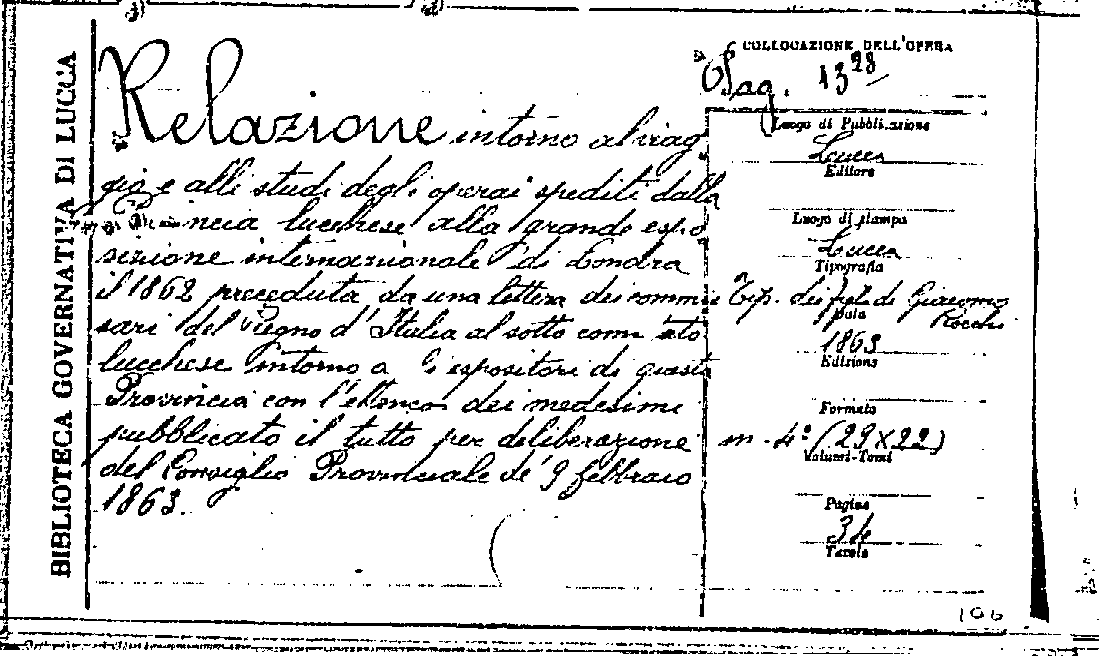 BIBLIOTECA GOVERNATIVA DI LUCCA
Relazione intorno al viag
gio e alli studi degli operai spediti dalla
Provincia lucchese alla grande espo
sizione internazionale di Londra
il 1862 preceduta da una lettera dei commis
sari del Regno d'Italia al sotto comitato
lucchese intorno a espositori di questa
Provincia con l'ellenco dei medesimi
pubblicato il tutto per deliberazione
del Consiglio Provinciale de' 9 febbraio
1863.
COLLOCAZIONE DELL'OPERA
13
Luogo di Pubblicazione
Lucca
Editore
Luogo di stampa
Lucca
Tipografia
Tip. dei figli di Giacomo
Rocchi
Data
1863
Edizione
Formato
in-4º (29x22)
Volumi-Tomi
Pagine
34
Tavole
106